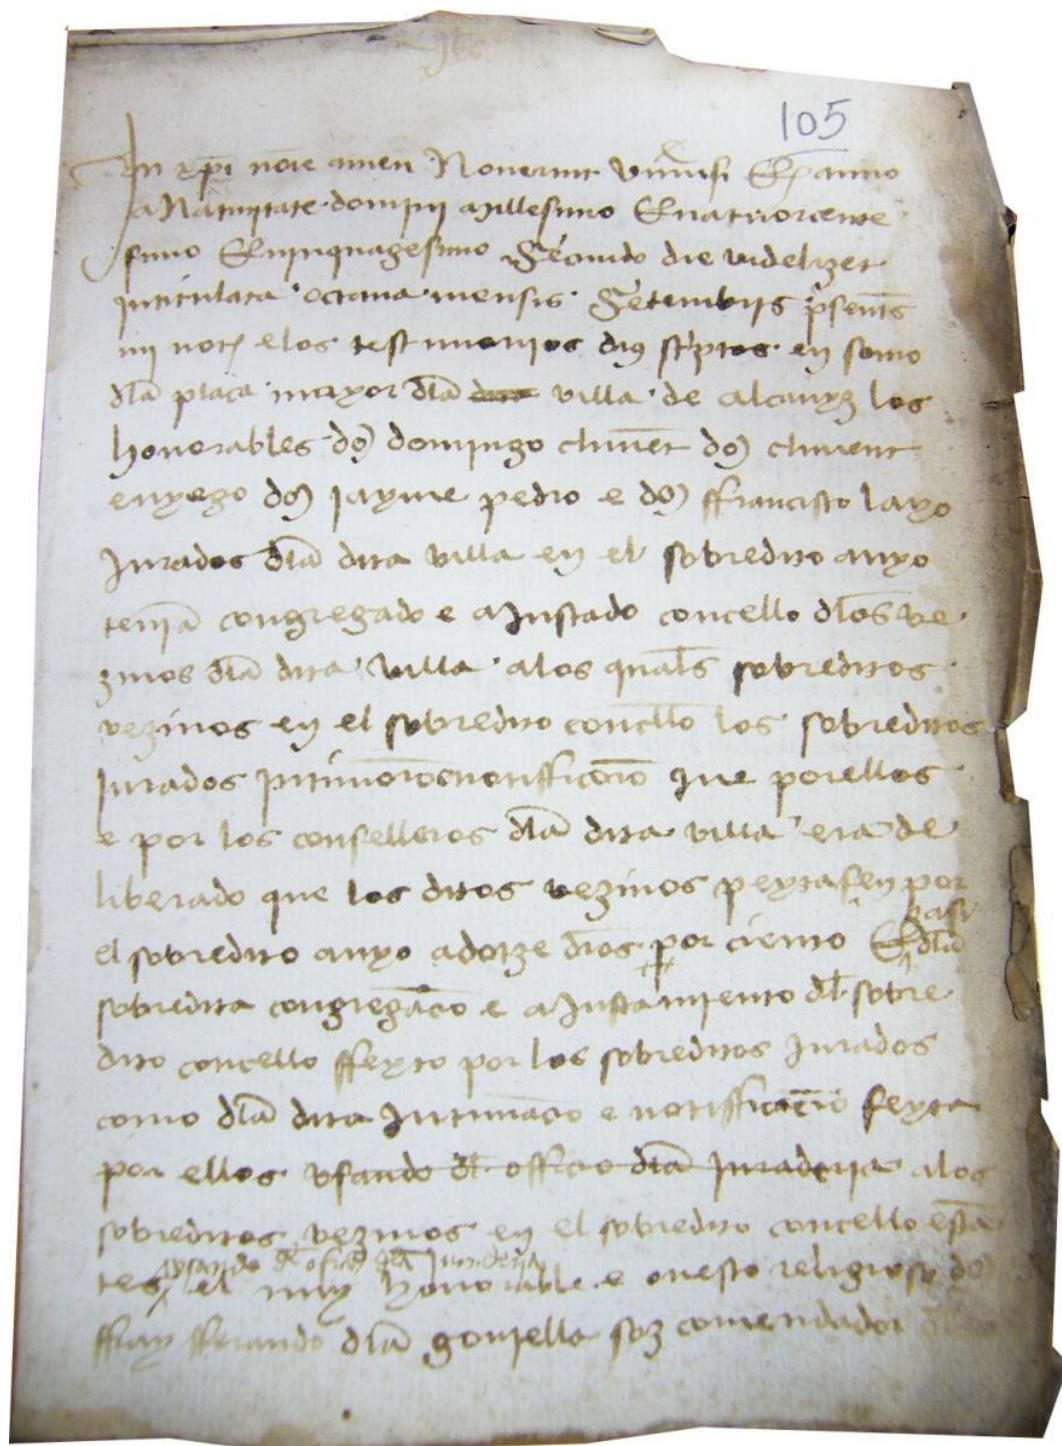 Jhs
105
In xpi noie amen Noverint universi Q anno
a Nativitate domini Millesimo Quatuorcente
simo Quinquagesimo Secundo die videlizet
intitulata octava mensis Setembris psents
mi not e los testimonios dius scriptos en somo
dla plaça mayor dla dita villa de alcanyz los
honorables do domingo climēt do climent
enyego do jayme pedro e do ffrancisco layo
Jurados dla dita villa en el sobredito anyo
teniā congregado e aJustado concello dlos ve
zinos dla dita villa a los quals sobreditos
vezinos en el sobredito concllo los sobreditos
Jurados intimorō e notifficorō que por ellos
e por los conselleros dla dita villa era de
liberado que los ditos vezinos peytassen por
el sobredito anyo a dotze dros por ciento E asi dla
sobredita congregacō e aJustamiento dl sobre
dito concello ffeyto por los sobreditos Jurados
como dla dita Intimacō e notifficacō feyta
por ellos usando dl officio dla Juraderia a los
sobreditos vezinos en el sobredito concello esta
usando dl oficio dla Juraderia
tes el muy honorable e onesto religioso do
ffray fferando dla goniella soz comendador